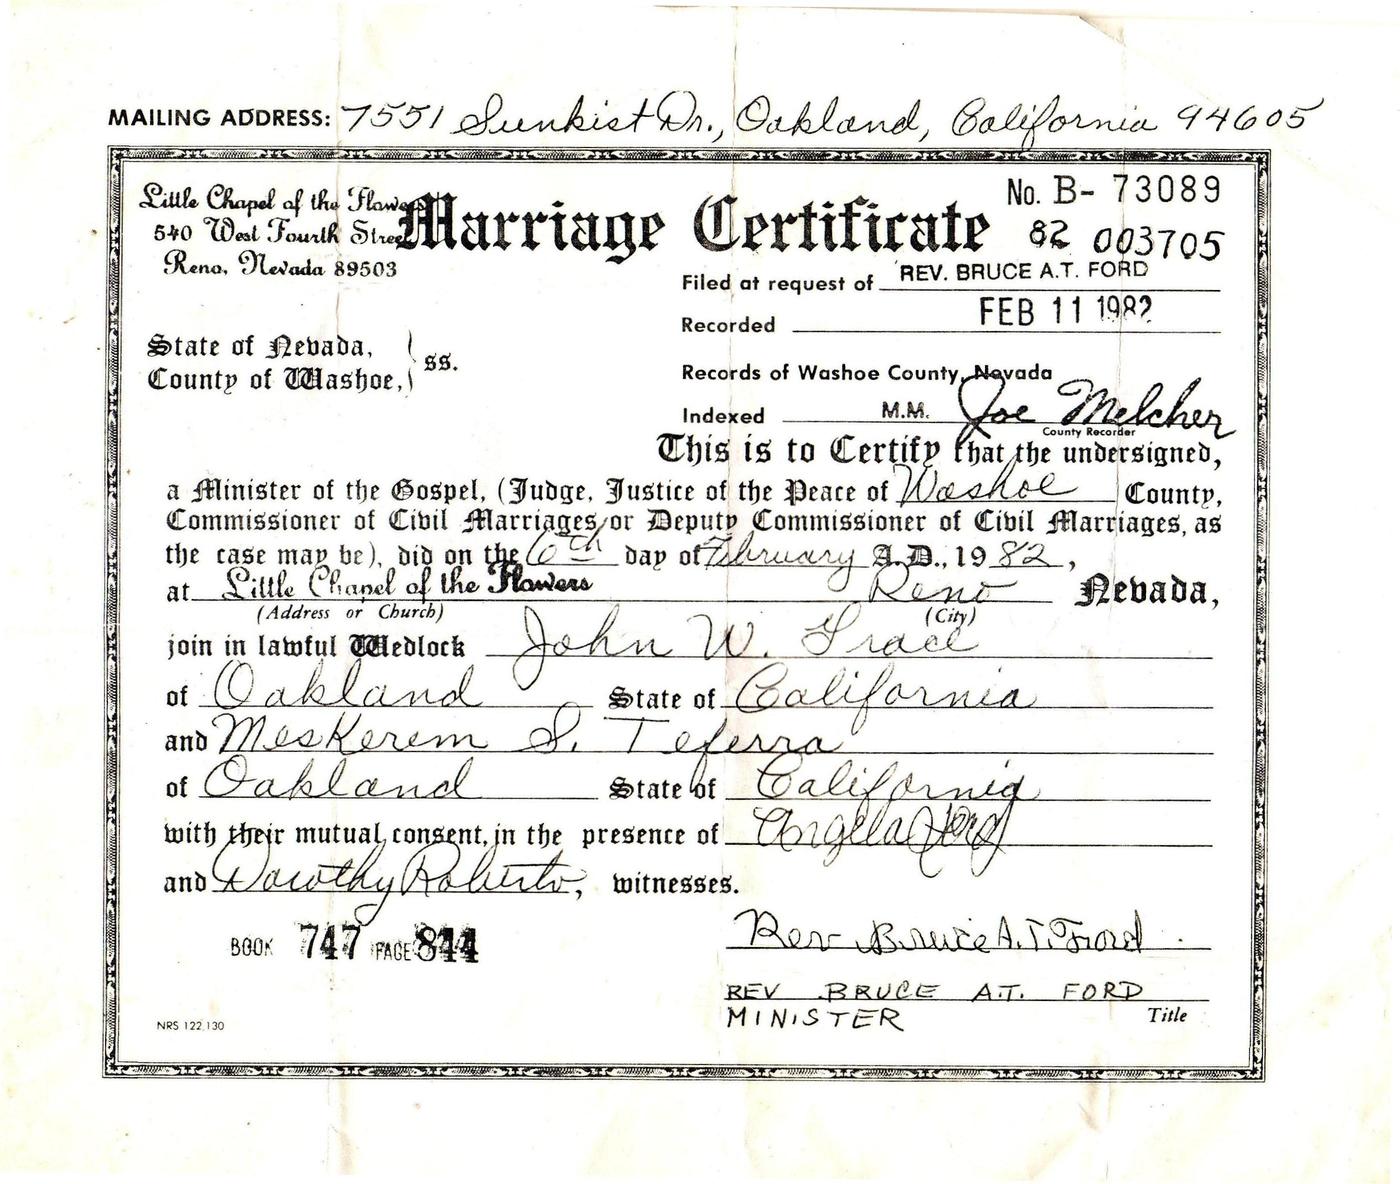 MAILING ADDRESS: 7551 Sunkist Dr., Oakland, California 94605
Little Chapel of the Flowers
540 West Fourth Street
Reno, Nevada 89503
Marriage Certificate
No. B- 73089
82 003705
Filed at request of REV. BRUCE A.T. FORD
Recorded FEB 11 1982
Records of Washoe County, Nevada
Indexed M.M. Joe Melcher
County Recorder
State of Nevada,
County of Washoe,
ss.
This is to Certify that the undersigned,
a Minister of the Gospel, (Judge, Justice of the Peace of Washoe County,
Commissioner of Civil Marriages or Deputy Commissioner of Civil Marriages, as
the case may be), did on the 6th day of February A.D., 1982,
at Little Chapel of the Flowers Reno Nevada,
(Address or Church) (City)
join in lawful Wedlock John W.
of Oakland State of California
and MesKerem S. Teferra
of Oakland State of California
with their mutual consent, in the presence of Angela Ford
and Dorothy Roberto, witnesses.
BOOK 747 PAGE 844
Rev Bruce A.T. Ford
REV BRUCE A.T. FORD
MINISTER Title
NRS 122.130